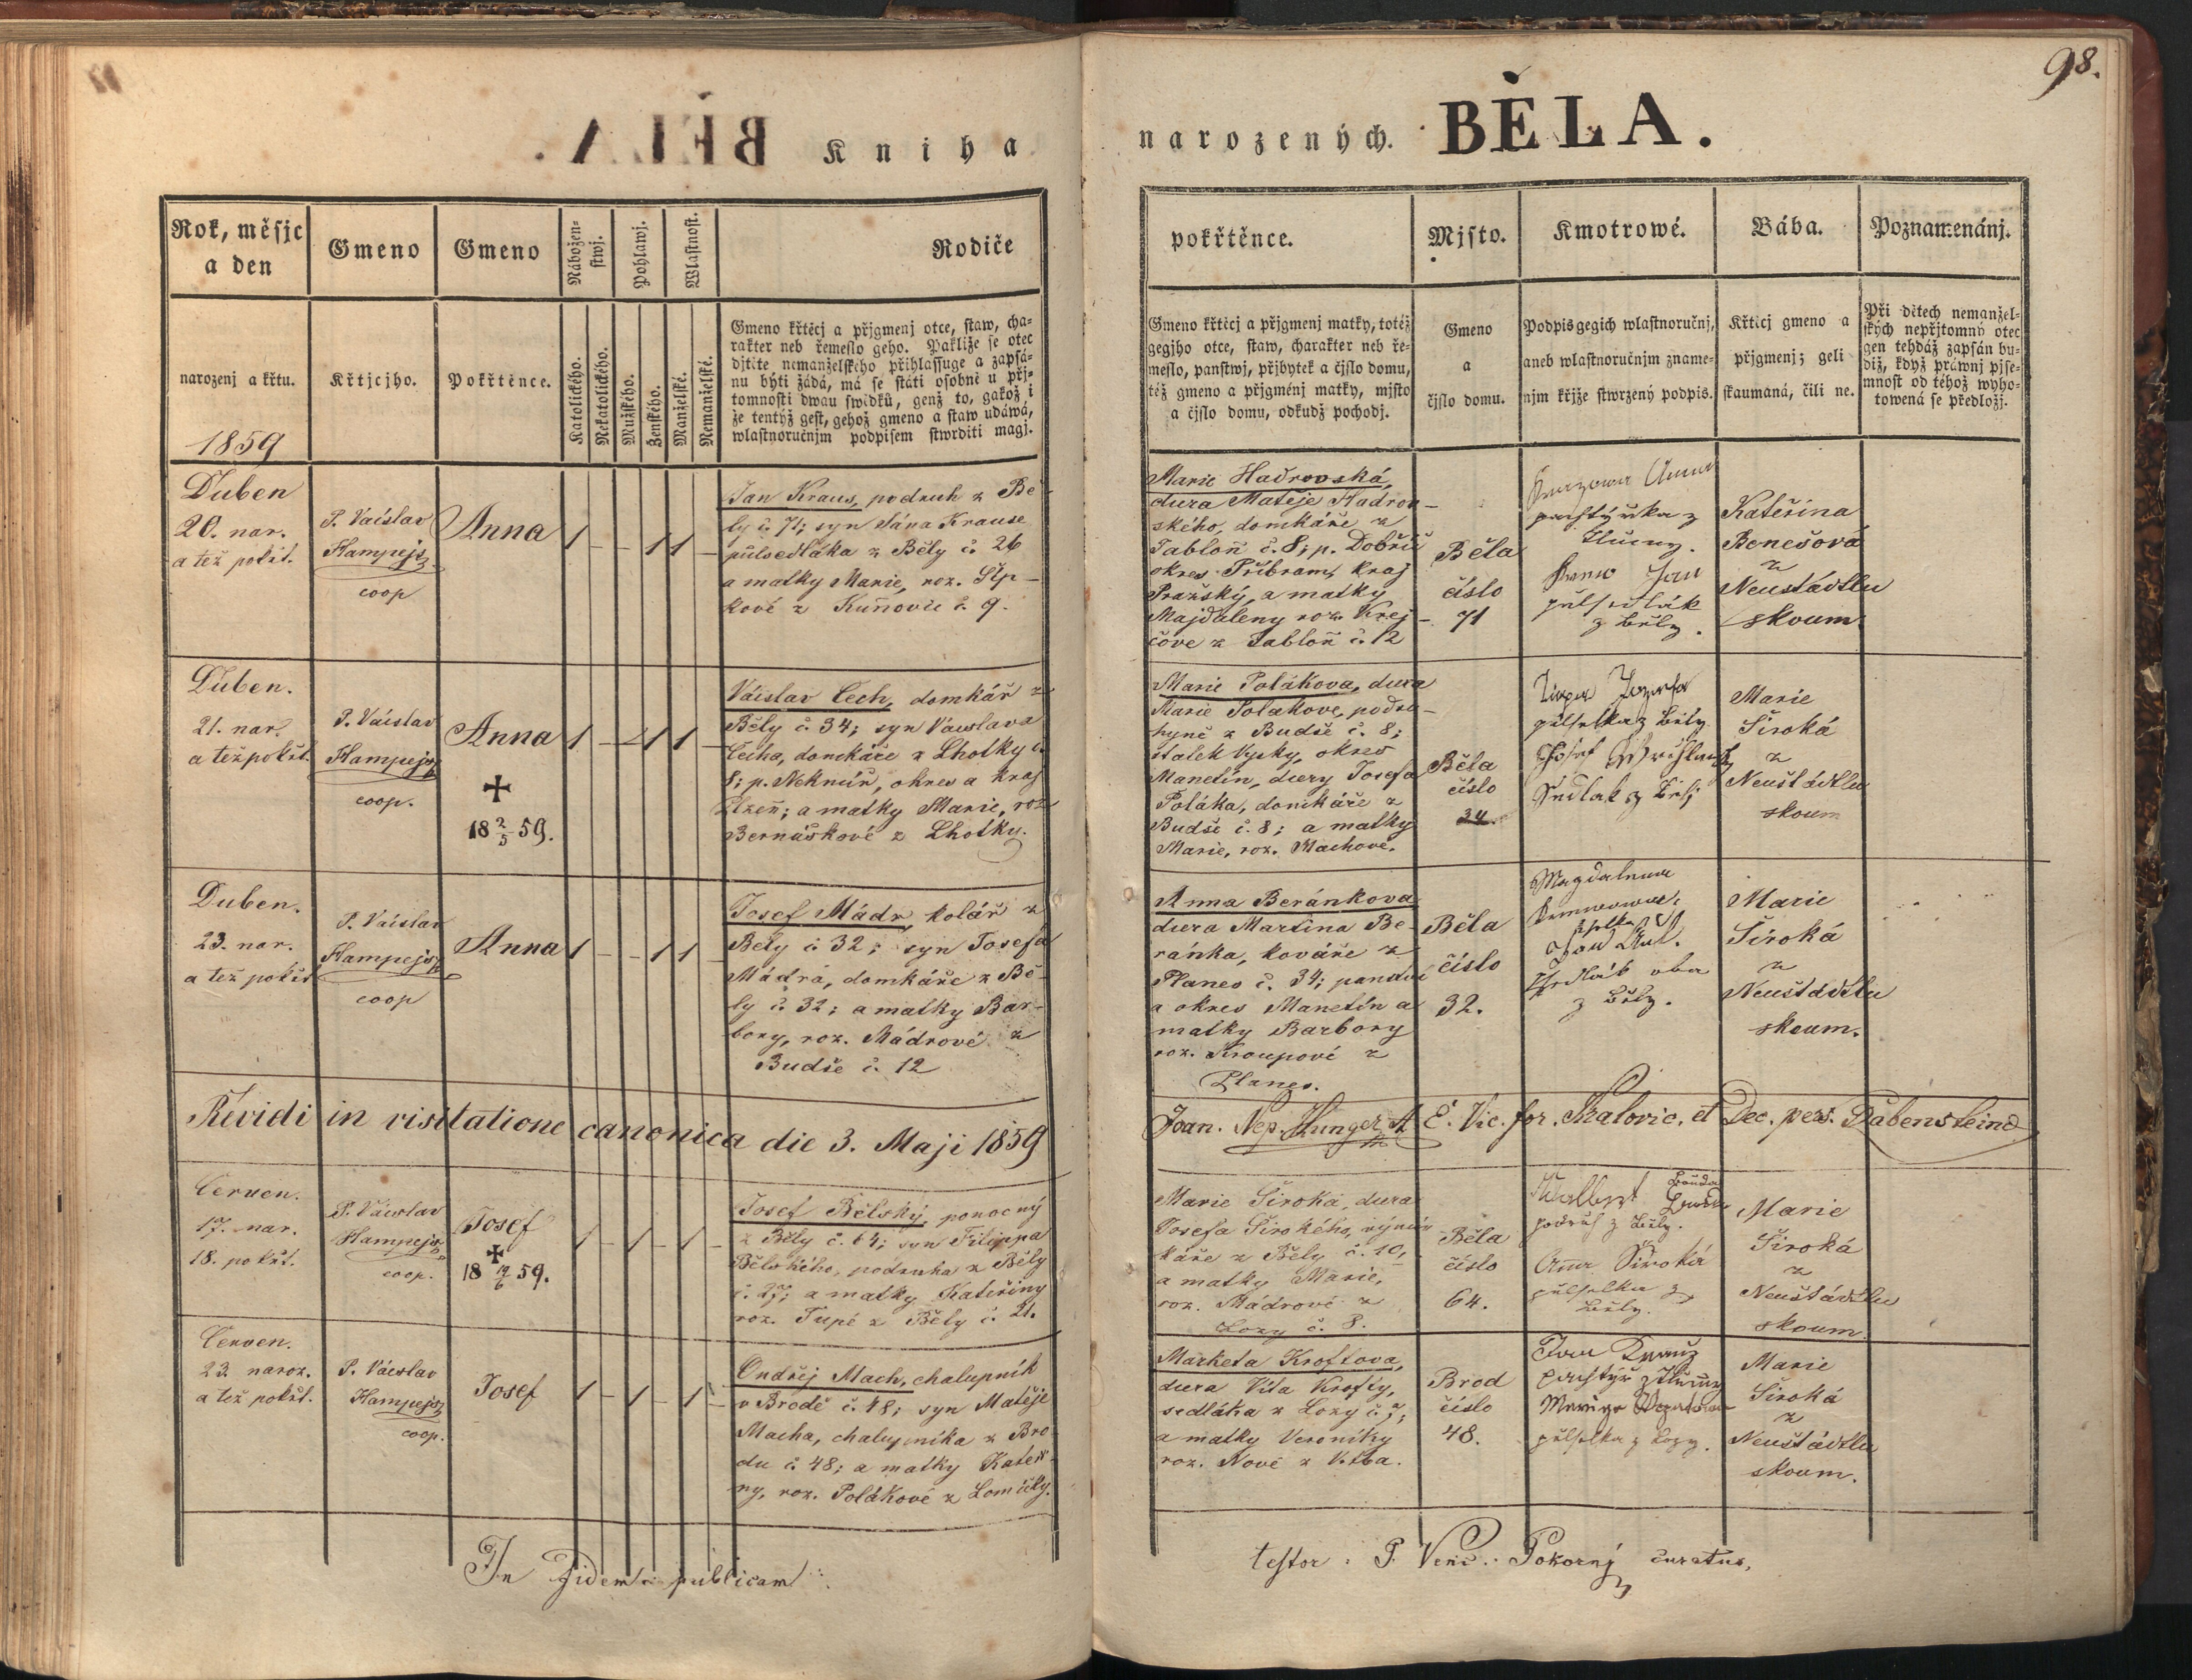 98.
Kniha
narozených. BĚLA.
Rok, měsjc
a den
narozenj a křtu.
1859
Gmeno
Křtjcjho.
Gmeno
Pokřtěnce.
Nábožen-
stwj.
Pohlawj.
Wlastnost.
Katolického.
Nekatolického.
Mužského.
Ženského.
Manželské.
Nemanželské.
Rodiče
Gmeno křtěcj a přjgmenj otce, staw, cha-
rakter neb řemeslo geho. Pakliže se otec
djtěte nemanželského přihlassuge a zapsá-
nu býti žádá, má se státi osobně u přj-
tomnosti dwau swědků, genž to, gakož i
že tentýž gest, gehož gmeno a staw udáwá,
wlastnoručnjm podpisem stwrditi magj.
pokřtěnce.
Gmeno křtěcj a přjgmenj matky, totéž
gegjho otce, staw, charakter neb ře-
meslo, panstwj, přjbytek a čjslo domu,
též gmeno a přjgménj matky, mjsto
a čjslo domu, odkudž pochodj.
Mjsto.
Gmeno
a
čjslo domu.
Kmotrowé.
Podpis gegich wlastnoručnj,
aneb wlastnoručnjm zname-
njm křjže stwrzený podpis.
Bába.
Křticj gmeno a
přjgmenj; geli
skaumaná, čili ne.
Poznamenánj.
Při dětech nemanžel-
ských nepřjtomný otec
gen tehdáž zapsán bu-
diž, když práwnj pjse-
mnost od téhož wyho-
towená se předložj.
Duben
20. nar.
a též pokřt.
P. Václav
Hampejs
coop
Anna
1 – – 1 1 –
Jan Kraus, podruh z Bě
ly č. 71; syn Jána Krause
půlsedláka z Běly č. 26
a matky Marie, roz. Šlp-
kové z Kuňovic č. 9.
Marie Hadrovská,
dcera Matěje Hadrov-
ského, domkáře z
Jabloň č. 8; p. Dobříš
okres Příbram, kraj
Pražský, a matky
Majdaleny roz. Krej-
čove z Jabloň č. 12
Běla
číslo
71
Anna
pachtýřka z
Jan
půlsedlák
z Běly.
Kateřina
Benešová
z
Neustádtlu
skoum.
Duben.
21. nar.
a též pokřt.
P. Václav
Hampejs
coop.
Anna
✝
18 2/5 59.
1 – – 1 1 –
Václav Čech, domkář z
Běly č. 34; syn Václava
Čecha, domkáře z Lhotky č.
8; p. Nekmíř, okres a kraj
Plzeň; a matky Marie, roz
Bernáškové z Lhotky.
Marie Polákova, dcera
Marie Polákove, podru-
hyně z Budče č. 8;
statek Vysky, okres
Manetín, dcery Josefa
Poláka, domkáře z
Budče č. 8; a matky
Marie, roz. Machove.
Běla
číslo
34.
půlselka z Běly
Josef
Sedlák z Běly
Marie
Široká
z
Neustádtlu
skoum
Duben.
23. nar.
a též pokřt
P. Václav
Hampejs
coop
Anna
1 – – 1 1 –
Josef Mádr, kolář z
Běly č. 32; syn Josefa
Mádra, domkáře z Bě-
ly č. 32; a matky Bar-
bory, roz. Mádrové z
Budče č. 12
Anna Beránkova
dcera Martina Be-
ránka, kováře z
Planes č. 34; panství
a okres Manetín a
matky Barbory
roz. Kroupové z
Planes.
Běla
číslo
32.
Magdalena
Jan
oba
z Běly.
Marie
Široká
z
Neustádtlu
skoum.
Revidi in visitatione canonica die 3. Maji 1859
Joan. Nep. Hunger A. E. Vic. for. Kralovic. et Dec. pers. Rabenstein
Červen.
17. nar.
18. pokřt.
P. Václav
Hampejs
coop.
Josef
✝
18 19/6 59.
1 – 1 – 1 –
Josef Bělský, ponocný
z Běly č. 64; syn Filippa
Bělského, podruha z Běly
č. 27; a matky Kateřiny
roz. Tupé z Běly č. 21.
Marie Široká, dcera
Josefa Širokého, výmin
káře z Běly č. 10,
a matky Marie,
roz. Mádrové z
Lozy č. 8.
Běla
číslo
64.
podruh z Běly.
Anna Široká
půlselka z
Běly.
Marie
Široká
z
Neustádtlu
skoum.
Červen.
23 naroz.
a též pokřt.
P. Václav
Hampejs
coop.
Josef
1 – 1 – 1 –
Ondřej Mach, chalupník
v Brodě č. 48; syn Matěje
Macha, chalupníka z Bro
du č. 48; a matky Kateř-
ny, roz. Polákové z Lomičky.
Marketa Kroftova,
dcera Víta Krofty,
sedláka z Lozy č. 7;
a matky Veroniky
roz. Nové z Vrtba.
Brod
číslo
48.
Jan
pachtýř z
půlselka z Lozy.
Marie
Široká
z
Neustádtlu
skoum.
In fidem publicam
testor: P. Venc. Pokorný curatus.